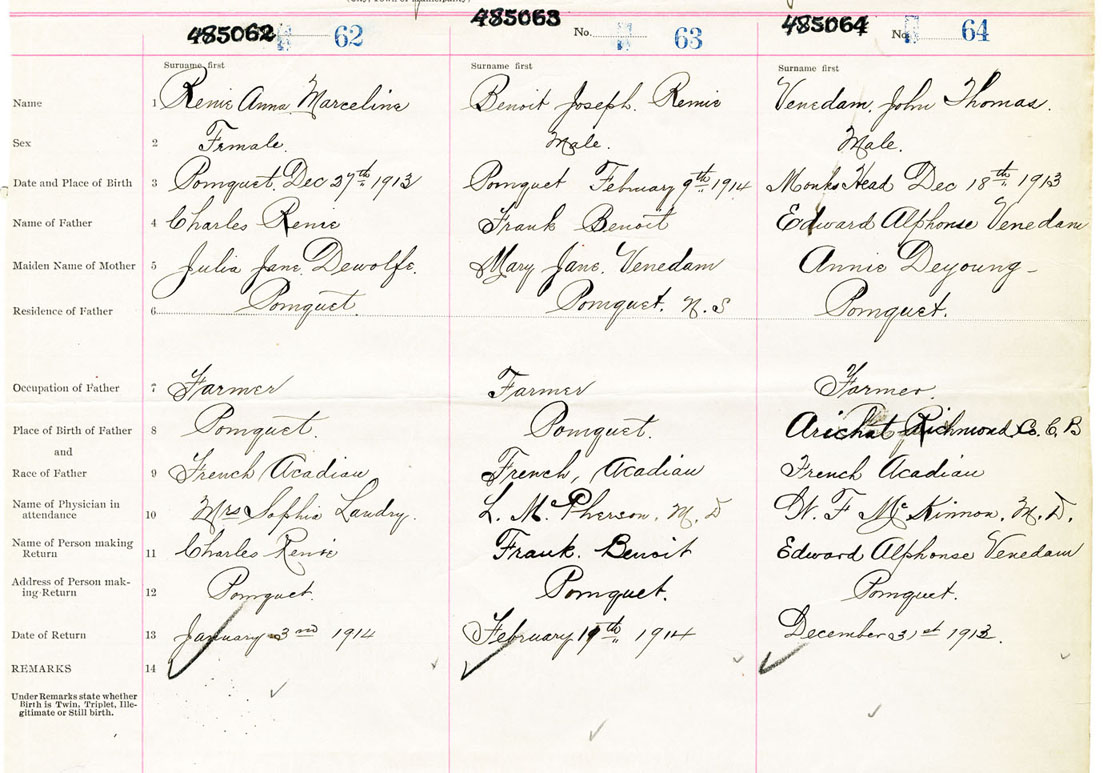 485062 62
485063 No. 63
485064 No. 64
Surname first
Surname first
Surname first
Name 1 Renie Anna Marceline
Benoit Joseph Remie
Venedam, John Thomas.
Sex 2 Female.
Male.
Male.
Date and Place of Birth 3 Pomquet, Dec 27th 1913
Pomquet February 9th 1914
Monks Head Dec 18th 1913
Name of Father 4 Charles Renie
Frank Benoit
Edward Alphonse Venedam
Maiden Name of Mother 5 Julia Jane Dewolfe.
Mary Jane Venedam
Annie Deyoung
Residence of Father 6 Pomquet.
Pomquet. N.S
Pomquet.
Occupation of Father 7 Farmer
Farmer
Farmer.
Place of Birth of Father 8 Pomquet.
Pomquet.
Arichat Richmond Co. C, B
and
Race of Father 9 French Acadian
French, Acadian
French Acadian
Name of Physician in
attendance 10 Mrs Sophie Landry.
L. McPherson, M. D
W. F McKinnon, M. D.
Name of Person making
Return 11 Charles Renie
Frank. Benoit
Edward Alphonse Venedam
Address of Person mak-
ing Return 12 Pomquet.
Pomquet.
Pomquet.
Date of Return 13 January 3nd 1914
February 19th 1914
December 31st 1913.
REMARKS 14
Under Remarks state whether
Birth is Twin, Triplet, Ille-
gitimate or Still birth.